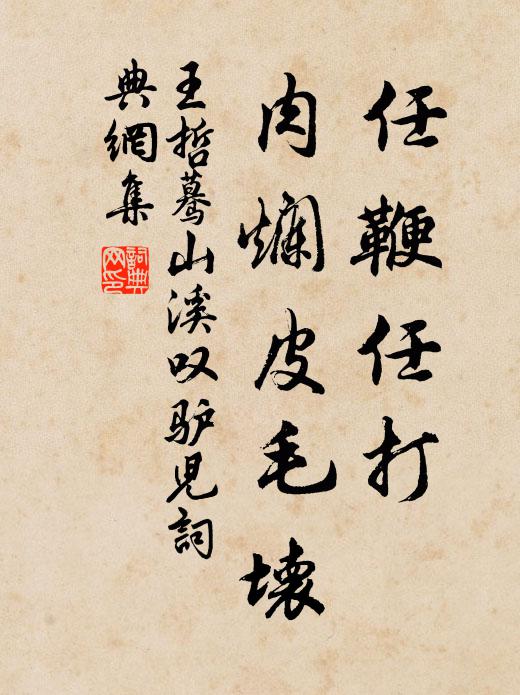 任鞭任打
肉爛皮毛壞
王哲蓦山溪叹驴児詞
典網集
詞典網印